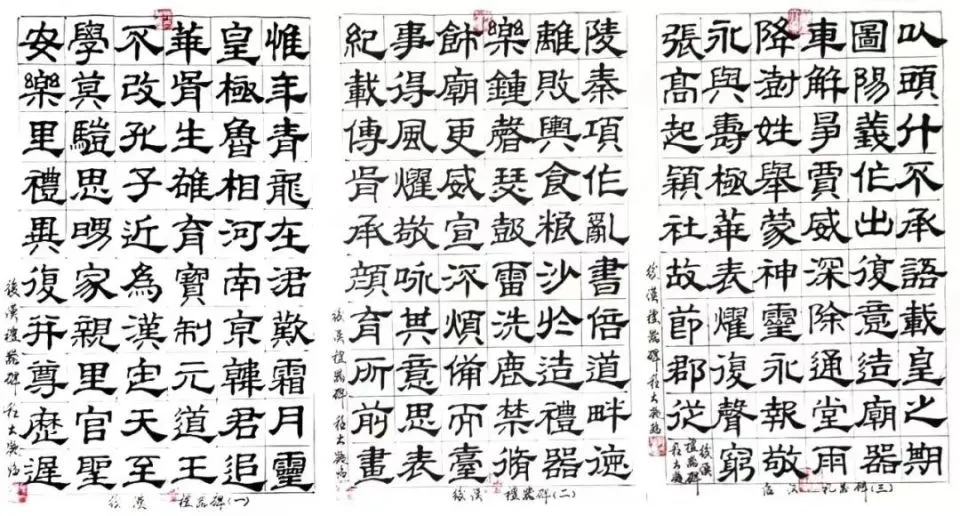 惟年青龍在涒歎霜月靈
皇極魯相河南京韓君追
華胥生雄育寶制元道王
不改孔子近為漢定天至
學莫驥思嘆家親里官聖
安樂里禮異復并尊歷遲
後漢禮器碑程大臨
後漢禮器碑(一)
陵秦項作亂書倍道畔德
離敗輿食粮沙於造禮器
樂鍾磬瑟鼓雷洗鹿禁脩
飾廟更威宣汙煩備而臺
事得風燿敬咏其意思表
紀載傳肯承顏育所前畫
後漢禮器碑程大臨
後漢禮器碑(二)
以頭什不承語載皇之期
圖陽義作出復意造廟器
車解爭賈威深除通堂雨
降澍姓舉蒙神靈永報敬
永與壽極華表燿復聲窮
張高起穎社故節郡從
後漢禮器碑程大臨
後漢禮器碑程大臨
後漢礼器碑(三)